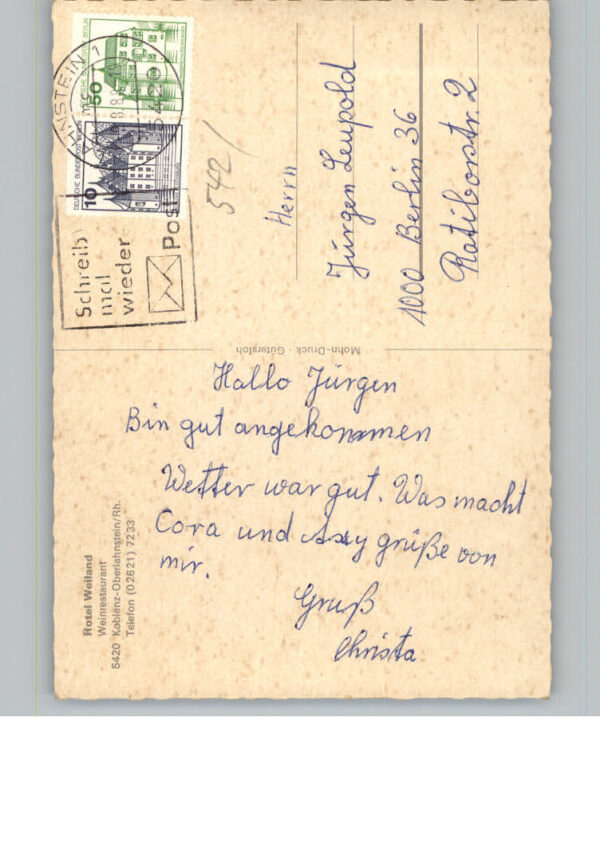 Hallo Jürgen
Bin gut angekommen
Wetter war gut. Was macht
Cora und grüße von
mir.
Gruß
Christa
Herrn
Jürgen Leupold
1000 Berlin 36
Ratiborstr. 2
542/
50
10
DEUTSCHE BUNDESPOST BERLIN
5420
Schreib
mal
wieder
Post
Mohn-Druck · Gütersloh
Hotel Weiland
Weinrestaurant
5420 Koblenz-Oberlahnstein/Rh.
Telefon (02621) 7233